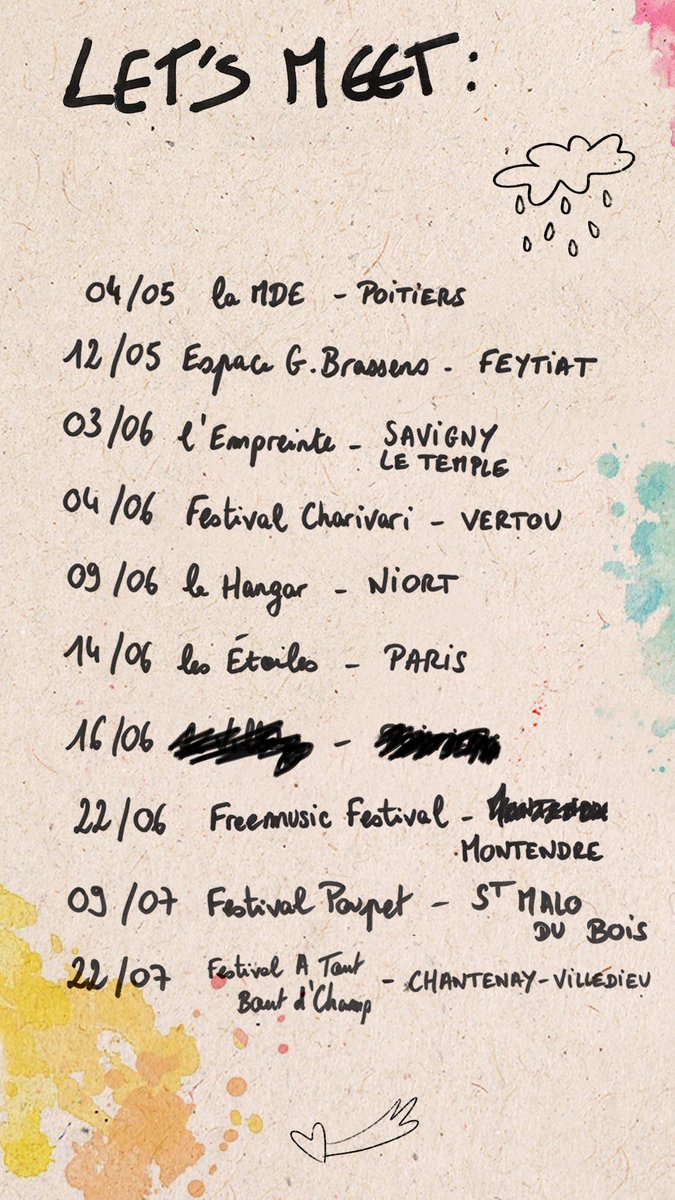 LET'S MEET:
04/05 la MDE - POITIERS
12/05 Espace G. Brassens - FEYTIAT
03/06 l'Empreinte - SAVIGNY
LE TEMPLE
04/06 Festival Charivari - VERTOU
09/06 le Hangar - NIORT
14/06 les Étoiles - PARIS
16/06 -
22/06 Freemusic Festival -
MONTENDRE
09/07 Festival Poupet - ST MALO
DU BOIS
22/07 Festival A Tout
Bout d'Champ - CHANTENAY-VILLEDIEU